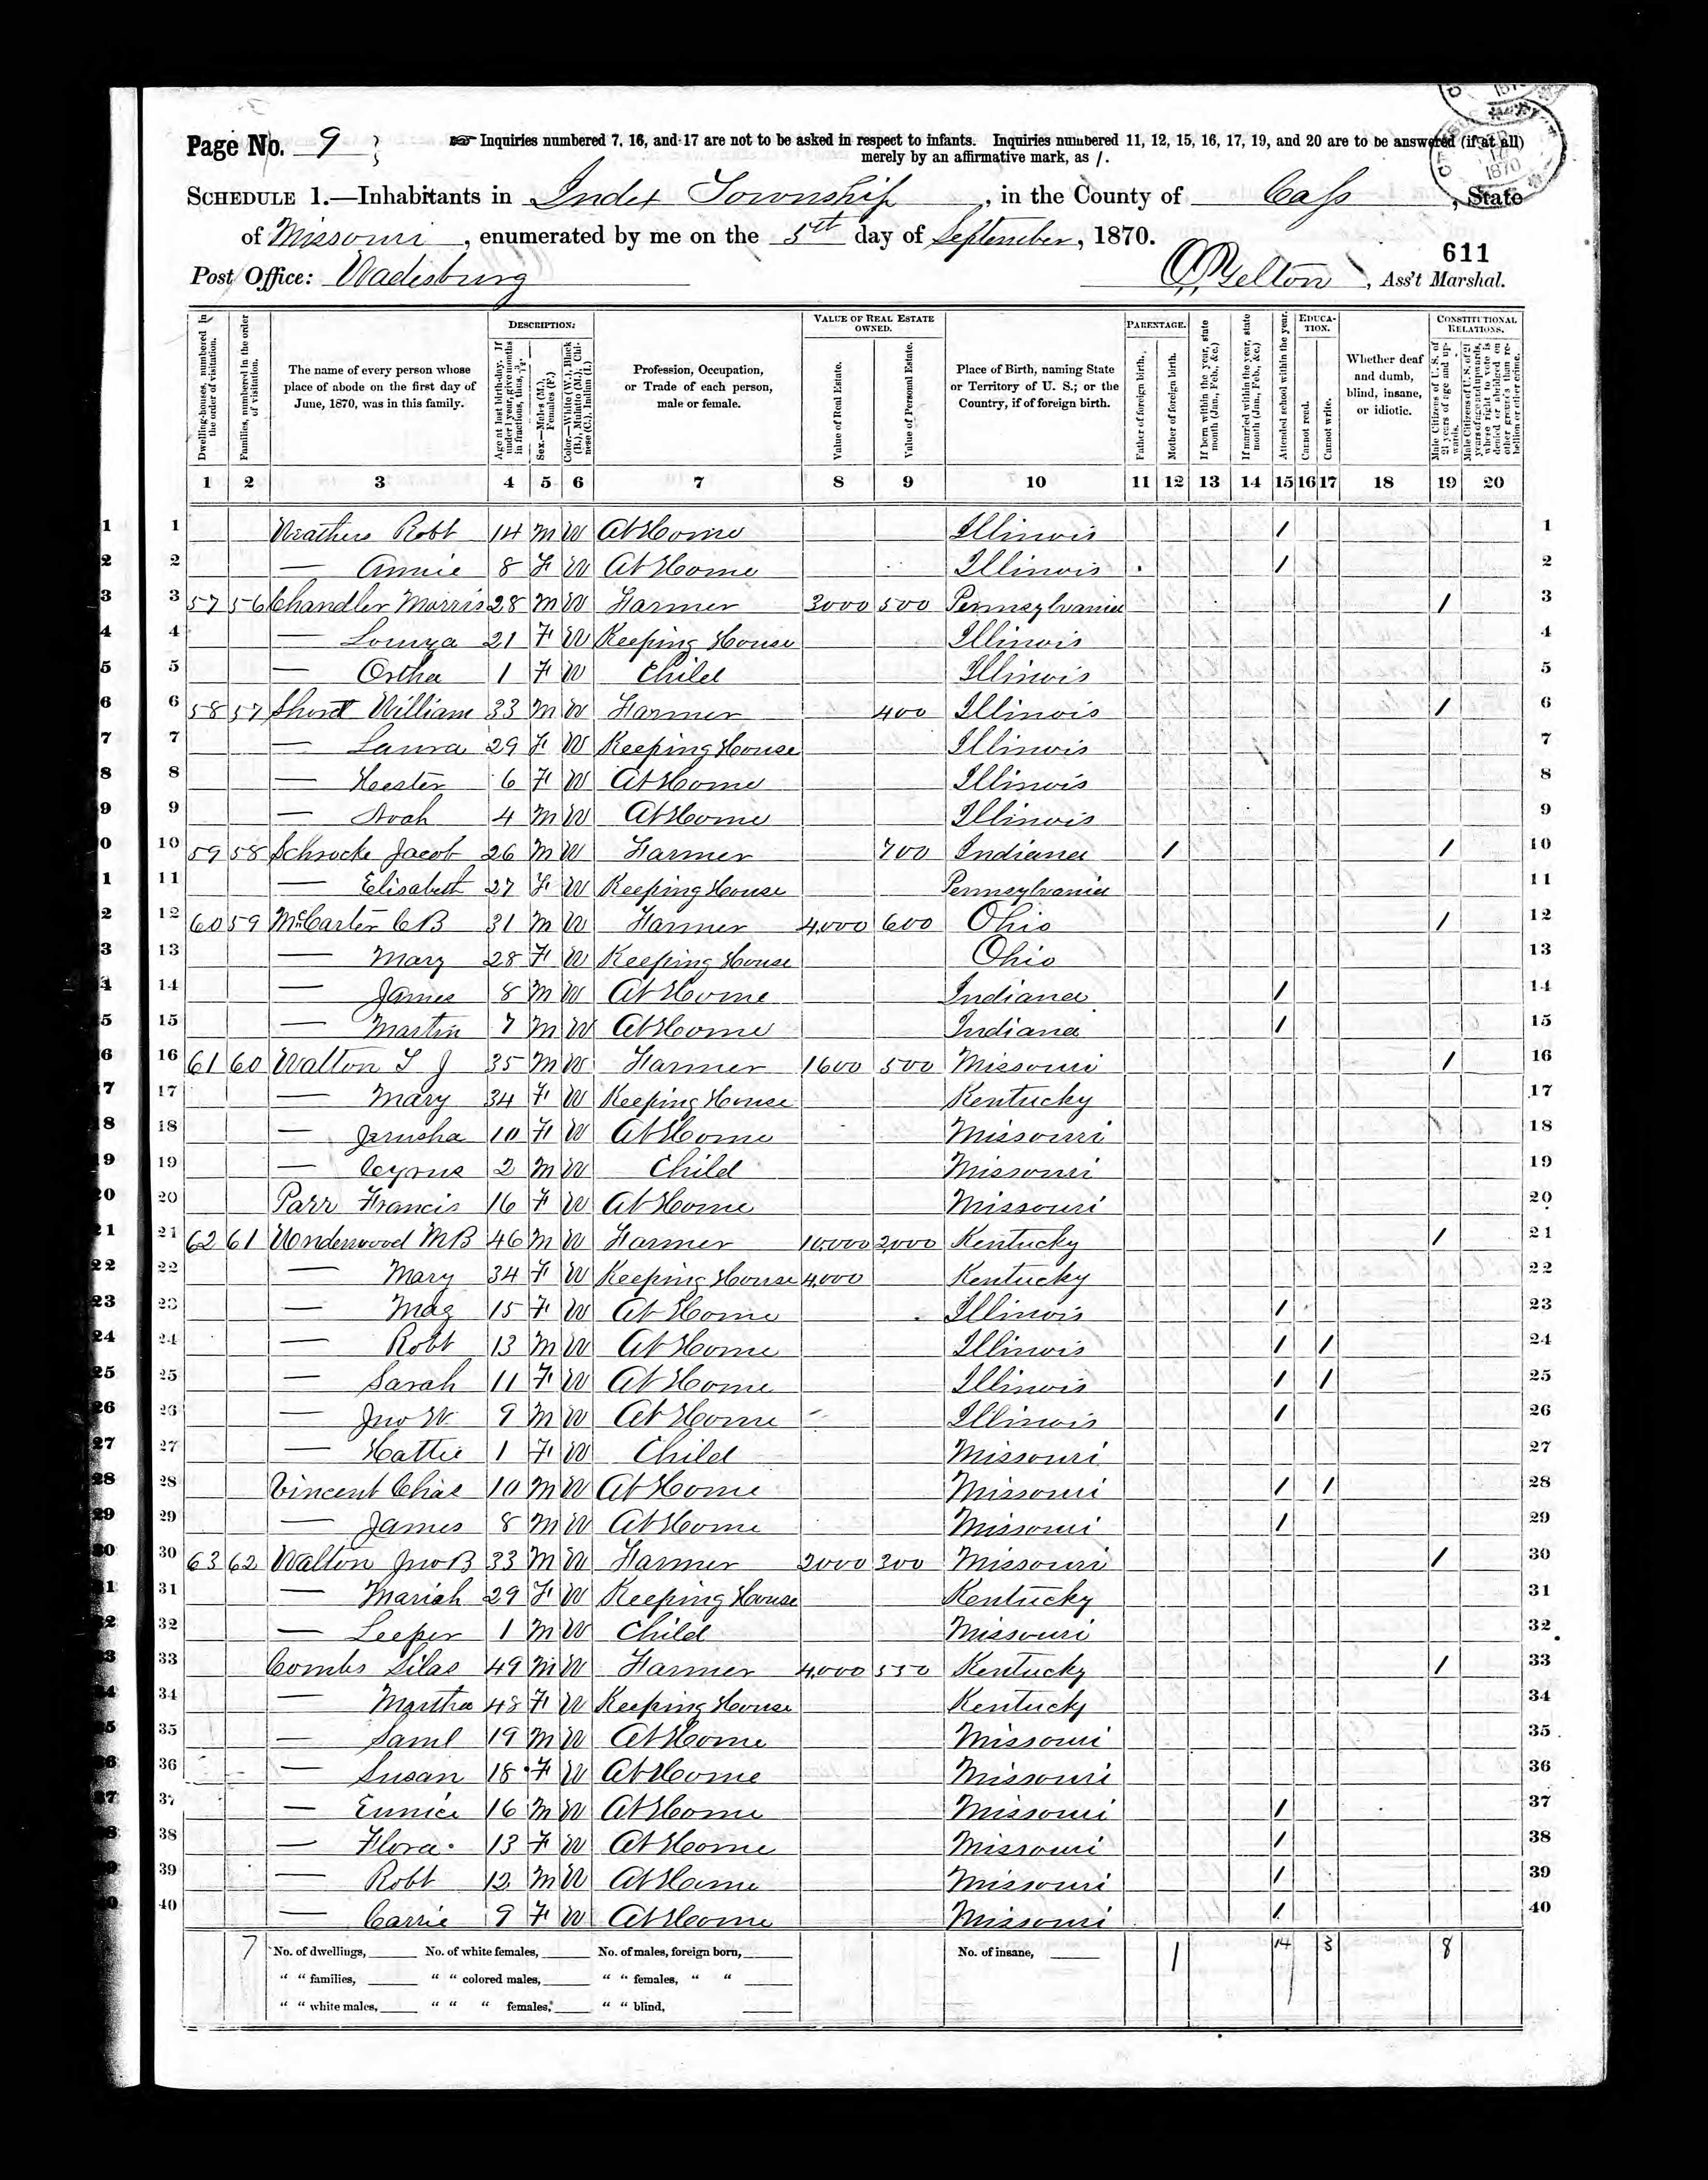 Page No. 9
Inquiries numbered 7, 16, and 17 are not to be asked in respect to infants. Inquiries numbered 11, 12, 15, 16, 17, 19, and 20 are to be answered (if at all)
merely by an affirmative mark, as /.
SCHEDULE 1.—Inhabitants in Index Township, in the County of Cass, State
of Missouri, enumerated by me on the 5th day of September, 1870.
611
Post Office: Wadesburg
Yelton, Ass't Marshal.
Dwelling-houses, numbered in the order of visitation.
Families, numbered in the order of visitation.
The name of every person whose place of abode on the first day of June, 1870, was in this family.
DESCRIPTION:
Age at last birth-day. If under 1 year, give months in fractions, thus, 3/12.
Sex.—Males (M.), Females (F.)
Color.—White (W.), Black (B.), Mulatto (M.), Chinese (C.), Indian (I.)
Profession, Occupation, or Trade of each person, male or female.
VALUE OF REAL ESTATE OWNED.
Value of Real Estate.
Value of Personal Estate.
Place of Birth, naming State or Territory of U. S.; or the Country, if of foreign birth.
PARENTAGE.
Father of foreign birth.
Mother of foreign birth.
If born within the year, state month (Jan., Feb., &c.)
If married within the year, state month (Jan., Feb., &c.)
Attended school within the year.
EDUCATION.
Cannot read.
Cannot write.
Whether deaf and dumb, blind, insane, or idiotic.
CONSTITUTIONAL RELATIONS.
Male Citizens of U. S. of 21 years of age and upwards.
Male Citizens of U. S. of 21 years of age and upwards, whose right to vote is denied or abridged on other grounds than rebellion or other crime.
1 2 3 4 5 6 7 8 9 10 11 12 13 14 15 16 17 18 19 20
1 Weathers Robt 14 M W At Home Illinois / 1
2 — Annie 8 F W At Home Illinois / 2
3 57 56 Chandler Morris 28 M W Farmer 3000 500 Pennsylvania / 3
4 — Louiza 21 F W Keeping House Illinois 4
5 — Ortha 1 F W Child Illinois 5
6 58 57 Short William 33 M W Farmer 400 Illinois / 6
7 — Laura 29 F W Keeping House Illinois 7
8 — Heester 6 F W At Home Illinois 8
9 — Noah 4 M W At Home Illinois 9
10 59 58 Schrocke Jacob 26 M W Farmer 700 Indiana / / 10
11 — Elisabeth 27 F W Keeping House Pennsylvania 11
12 60 59 McCarter C B 31 M W Farmer 4,000 600 Ohio / 12
13 — Mary 28 F W Keeping House Ohio 13
14 — James 8 M W At Home Indiana / 14
15 — Martin 7 M W At Home Indiana / 15
16 61 60 Walton T J 35 M W Farmer 1600 500 Missouri / 16
17 — Mary 34 F W Keeping House Kentucky 17
18 — Jerusha 10 F W At Home Missouri 18
19 — Cyrus 2 M W Child Missouri 19
20 Parr Francis 16 F W At Home Missouri 20
21 62 61 Underwood M B 46 M W Farmer 10,000 2,000 Kentucky / 21
22 — Mary 34 F W Keeping House 4,000 Kentucky 22
23 — Mag 15 F W At Home Illinois / 23
24 — Robt 13 M W At Home Illinois / / 24
25 — Sarah 11 F W At Home Illinois / / 25
26 — Jno W. 9 M W At Home Illinois / 26
27 — Hattie 1 F W Child Missouri 27
28 Vincent Chas 10 M W At Home Missouri / / 28
29 — James 8 M W At Home Missouri / 29
30 63 62 Walton Jno B 33 M W Farmer 2000 300 Missouri / 30
31 — Mariah 29 F W Keeping House Kentucky 31
32 — Leeper 1 M W Child Missouri 32
33 Combs Silas 49 M W Farmer 4,000 550 Kentucky / 33
34 — Martha 48 F W Keeping House Kentucky 34
35 — Saml 19 M W At Home Missouri 35
36 — Susan 18 F W At Home Missouri 36
37 — Eunice 16 M W At Home Missouri / 37
38 — Flora 13 F W At Home Missouri / 38
39 — Robt 12 M W At Home Missouri / 39
40 — Carrie 9 F W At Home Missouri / 40
7 No. of dwellings, No. of white females, No. of males, foreign born, No. of insane, 1 14 3 8
“ “ families, “ “ colored males, “ “ females, “ “
“ “ white males, “ “ “ females, “ “ blind,